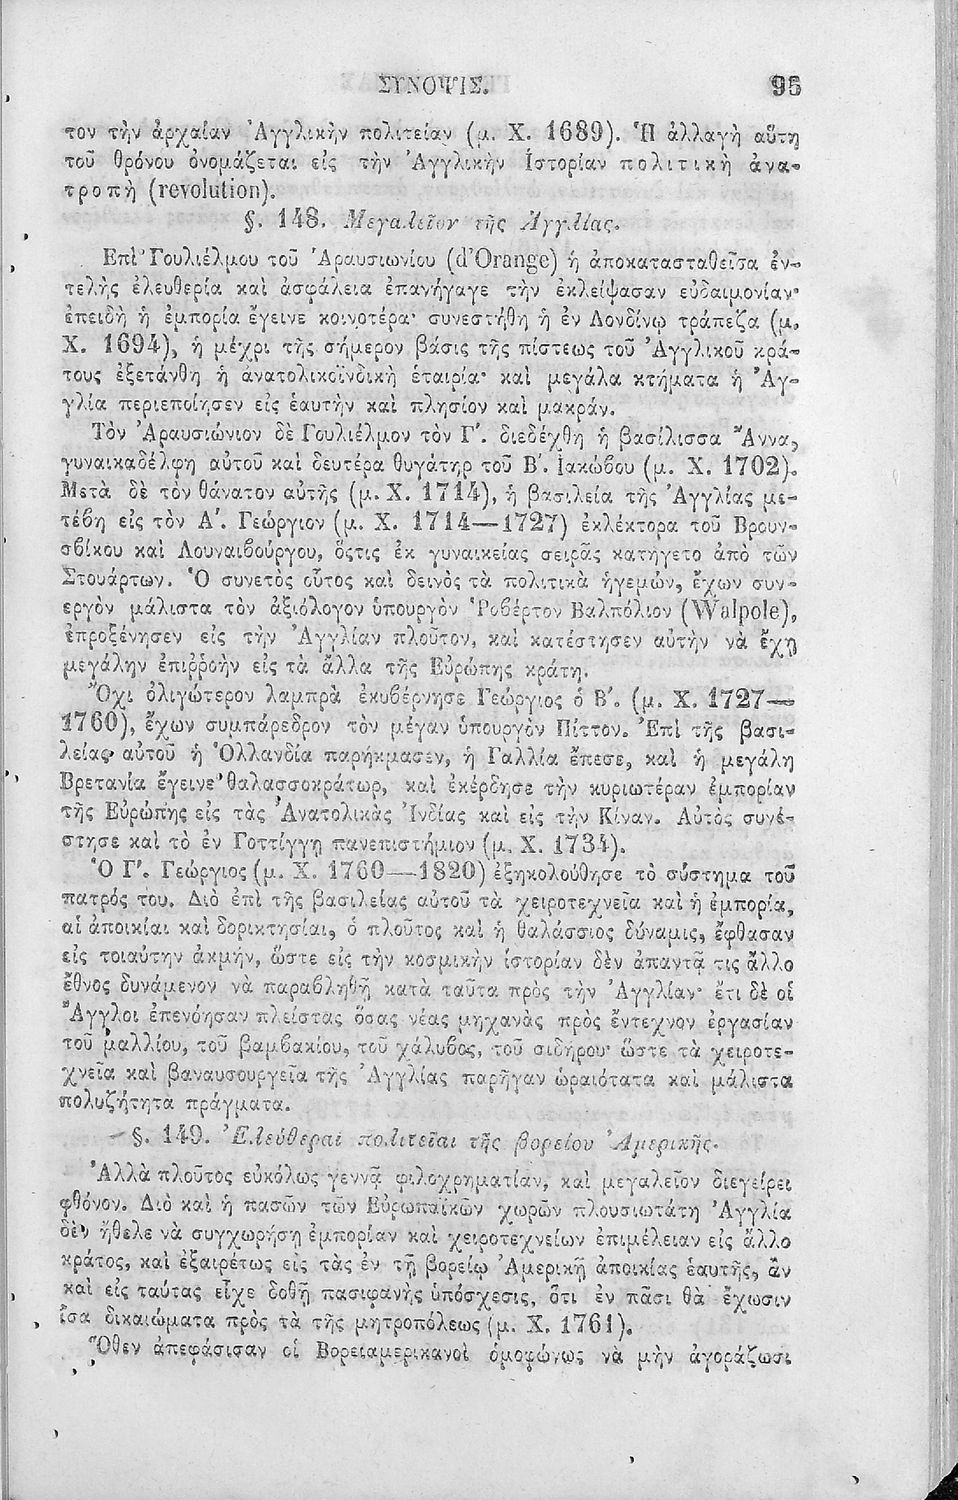 ΣΥΝΟΨΙΣ. 95
τον τὴν ἀρχαίαν Ἀγγλικὴν πολιτείαν (μ. Χ. 1689). Ἡ ἀλλαγὴ αὕτη
τοῦ θρόνου ὀνομάζεται εἰς τὴν Ἀγγλικὴν ἱστορίαν πολιτικὴ ἀνα-
τροπὴ (revolution).
§. 148. Μεγαλεῖον τῆς Ἀγγλίας.
Ἐπὶ Γουλιέλμου τοῦ Ἀραυσιωνίου (d'Orange) ἡ ἀποκατασταθεῖσα ἐν-
τελὴς ἐλευθερία καὶ ἀσφάλεια ἐπανήγαγε τὴν ἐκλείψασαν εὐδαιμονίαν·
ἐπειδὴ ἡ ἐμπορία ἔγεινε κοινοτέρα· συνεστήθη ἡ ἐν Λονδίνῳ τράπεζα (μ.
Χ. 1694), ἡ μέχρι τῆς σήμερον βάσις τῆς πίστεως τοῦ Ἀγγλικοῦ κρά-
τους ἐξετάνθη ἡ ἀνατολικοϊνδικὴ ἑταιρία· καὶ μεγάλα κτήματα ἡ Ἀγ-
γλία περιεποίησεν εἰς ἑαυτὴν καὶ πλησίον καὶ μακράν.
Τὸν Ἀραυσιώνιον δὲ Γουλιέλμον τὸν Γ'. διεδέχθη ἡ βασίλισσα Ἄννα,
γυναικαδέλφη αὐτοῦ καὶ δευτέρα θυγάτηρ τοῦ Β'. Ἰακώβου (μ. Χ. 1702).
Μετὰ δὲ τὸν θάνατον αὐτῆς (μ. Χ. 1714), ἡ βασιλεία τῆς Ἀγγλίας με-
τέβη εἰς τὸν Α'. Γεώργιον (μ. Χ. 1714—1727) ἐκλέκτορα τοῦ Βρουν-
σβίκου καὶ Λουναιβούργου, ὅςτις ἐκ γυναικείας σειρᾶς κατήγετο ἀπὸ τῶν
Στουάρτων. Ὁ συνετὸς οὗτος καὶ δεινὸς τὰ πολιτικὰ ἡγεμὼν, ἔχων συν-
εργὸν μάλιστα τὸν ἀξιόλογον ὑπουργὸν Ῥοβέρτον Βαλπόλιον (Walpole),
ἐπροξένησεν εἰς τὴν Ἀγγλίαν πλοῦτον, καὶ κατέστησεν αὐτὴν νὰ ἔχῃ
μεγάλην ἐπιῤῥοὴν εἰς τὰ ἄλλα τῆς Εὐρώπης κράτη.
Ὄχι ὀλιγώτερον λαμπρὰ ἐκυβέρνησε Γεώργιος ὁ Β'. (μ. Χ. 1727—
1760), ἔχων συμπάρεδρον τὸν μέγαν ὑπουργὸν Πίττον. Ἐπὶ τῆς βασι-
λείας αὐτοῦ ἡ Ὁλλανδία παρήκμασεν, ἡ Γαλλία ἔπεσε, καὶ ἡ μεγάλη
Βρετανία ἔγεινε θαλασσοκράτωρ, καὶ ἐκέρδησε τὴν κυριωτέραν ἐμπορίαν
τῆς Εὐρώπης εἰς τὰς Ἀνατολικὰς Ἰνδίας καὶ εἰς τὴν Κίναν. Αὐτὸς συνέ-
στησε καὶ τὸ ἐν Γοττίγγῃ πανεπιστήμιον (μ. Χ. 1734).
Ὁ Γ'. Γεώργιος (μ. Χ. 1760—1820) ἐξηκολούθησε τὸ σύστημα τοῦ
πατρός του. Διὸ ἐπὶ τῆς βασιλείας αὐτοῦ τὰ χειροτεχνεῖα καὶ ἡ ἐμπορία,
αἱ ἀποικίαι καὶ δορικτησίαι, ὁ πλοῦτος καὶ ἡ θαλάσσιος δύναμις, ἔφθασαν
εἰς τοιαύτην ἀκμὴν, ὥστε εἰς τὴν κοσμικὴν ἱστορίαν δὲν ἀπαντᾷ τις ἄλλο
ἔθνος δυνάμενον νὰ παραβληθῇ κατὰ ταῦτα πρὸς τὴν Ἀγγλίαν· ἔτι δὲ οἱ
Ἄγγλοι ἐπενόησαν πλείστας ὅσας νέας μηχανὰς πρὸς ἔντεχνον ἐργασίαν
τοῦ μαλλίου, τοῦ βαμβακίου, τοῦ χάλυβος, τοῦ σιδήρου· ὥστε τὰ χειροτε-
χνεῖα καὶ βαναυσουργεῖα τῆς Ἀγγλίας παρῆγαν ὡραιότατα καὶ μάλιστα
πολυζήτητα πράγματα.
§. 149. Ἐλεύθεραι πολιτεῖαι τῆς βορείου Ἀμερικῆς.
Ἀλλὰ πλοῦτος εὐκόλως γεννᾷ φιλοχρηματίαν, καὶ μεγαλεῖον διεγείρει
φθόνον. Διὸ καὶ ἡ πασῶν τῶν Εὐρωπαϊκῶν χωρῶν πλουσιωτάτη Ἀγγλία
δὲν ἤθελε νὰ συγχωρήσῃ ἐμπορίαν καὶ χειροτεχνείων ἐπιμέλειαν εἰς ἄλλο
κράτος, καὶ ἐξαιρέτως εἰς τὰς ἐν τῇ βορείῳ Ἀμερικῇ ἀποικίας ἑαυτῆς, ἂν
καὶ εἰς ταύτας εἶχε δοθῆ πασιφανὴς ὑπόσχεσις, ὅτι ἐν πᾶσι θὰ ἔχωσιν
ἴσα δικαιώματα πρὸς τὰ τῆς μητροπόλεως (μ. Χ. 1761).
Ὅθεν ἀπεφάσισαν οἱ Βορειαμερικανοὶ ὁμοφώνως νὰ μὴν ἀγοράζωσι